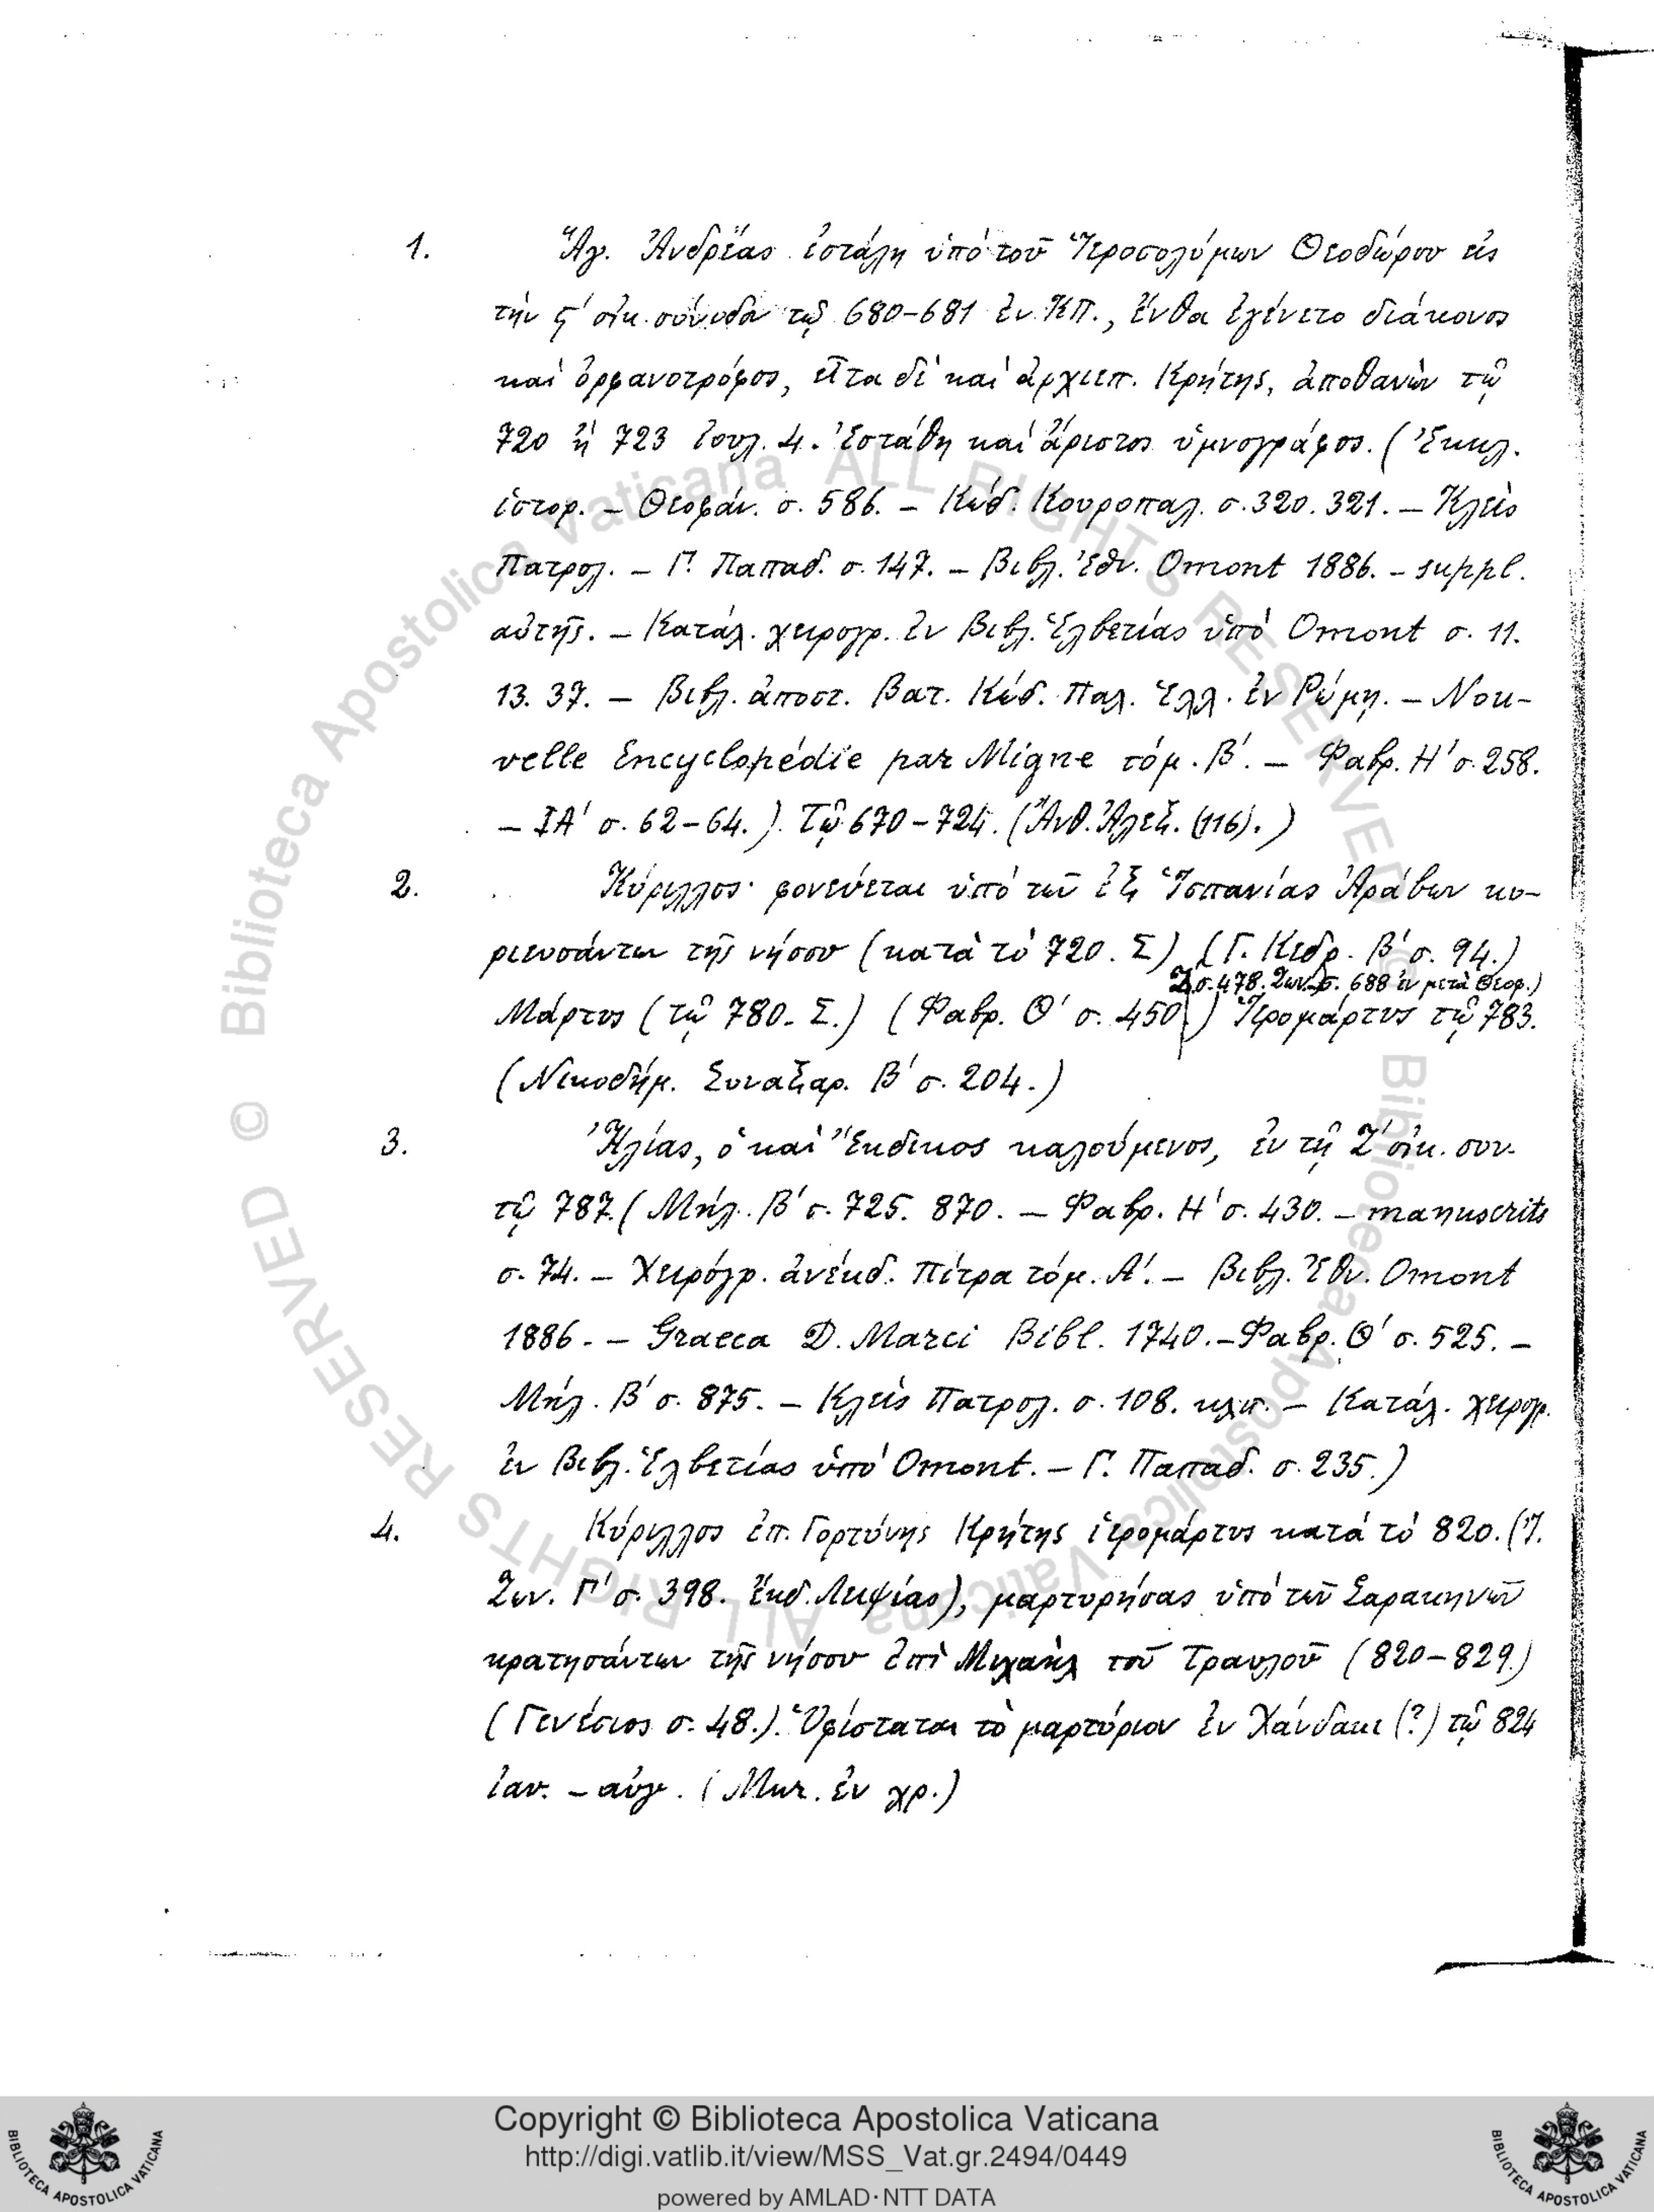 1. Ἅγ. Ἀνδρέας ἐστάλη ὑπὸ τοῦ Ἱεροσολύμων Θεοδώρου εἰς
τὴν ς΄ οἰκ. σύνοδον τῷ 680-681 ἐν ΚΠ., ἔνθα ἐγένετο διάκονος
καὶ ὀρφανοτρόφος, εἶτα δὲ καὶ ἀρχιεπ. Κρήτης, ἀποθανὼν τῷ
720 ἢ 723 ἰουλ. 4. Ἐστάθη καὶ ἄριστος ὑμνογράφος. (Ἐκκλ.
ἱστορ. – Θεοφάν. σ. 586. – Κώδ. Κουροπαλ. σ. 320. 321. – Κλεὶς
Πατρολ. – Γ. Παπαδ. σ. 147. – Βιβλ. Ἐθν. Omont 1886. – suppl.
αὐτῆς. – Κατάλ. χειρογρ. ἐν Βιβλ. Ἑλβετίας ὑπὸ Omont σ. 11.
13. 37. – Βιβλ. ἀποστ. Βατ. Κώδ. Παλ. Ἑλλ. ἐν Ῥώμῃ. – Nou-
velle Encyclopédie par Migne τόμ. Β΄. – Φαβρ. Η΄ σ. 258.
– ΙΑ΄ σ. 62-64.). Τῷ 670-724. (Ἀνθ. Ἀλεξ. (116).)
2. Κύριλλος· φονεύεται ὑπὸ τῶν ἐξ Ἱσπανίας Ἀράβων κυ-
ριευσάντων τῆς νήσου (κατὰ τὸ 720. Σ) (Γ. Κεδρ. Β΄ σ. 94.)
Ζ σ. 478. Ζων. σ. 688 ἐν μετὰ Θεοφ.)
Μάρτυς (τῷ 780. Σ.) (Φαβρ. Θ΄ σ. 450.) Ἱερομάρτυς τῷ 783.
(Νικοδήμ. Συναξαρ. Β΄ σ. 204.)
3. Ἠλίας, ὁ καὶ Ἔκδικος καλούμενος, ἐν τῇ Ζ΄ οἰκ. συν.
τῷ 787. (Μήλ. Β΄ σ. 725. 870. – Φαβρ. Η΄ σ. 430. – manuscrits
σ. 74. – Χειρόγρ. ἀνέκδ. Πίτρα τόμ. Α΄. – Βιβλ. Ἐθν. Omont
1886. – Graeca D. Marci Bibl. 1740. – Φαβρ. Θ΄ σ. 525. –
Μήλ. Β΄ σ. 875. – Κλεὶς Πατρολ. σ. 108. κλπ. – Κατάλ. χειρογρ.
ἐν Βιβλ. Ἑλβετίας ὑπὸ Omont. – Γ. Παπαδ. σ. 235.)
4. Κύριλλος ἐπ. Γορτύνης Κρήτης ἱερομάρτυς κατὰ τὸ 820. (Ἰ.
Ζων. Γ΄ σ. 398. ἔκδ. Λειψίας), μαρτυρήσας ὑπὸ τῶν Σαρακηνῶν
κρατησάντων τῆς νήσου ἐπὶ Μιχαὴλ τοῦ Τραυλοῦ (820-829.)
(Γενέσιος σ. 48.). Ὑφίσταται τὸ μαρτύριον ἐν Χάνδακι (?) τῷ 824
ἰαν. – αὐγ. (Μυτ. ἐν χρ.)
© Biblioteca Apostolica Vaticana ALL RIGHTS RESERVED
Copyright © Biblioteca Apostolica Vaticana
http://digi.vatlib.it/view/MSS_Vat.gr.2494/0449
powered by AMLAD·NTT DATA
BIBLIOTECA APOSTOLICA VATICANA
BIBLIOTECA APOSTOLICA VATICANA